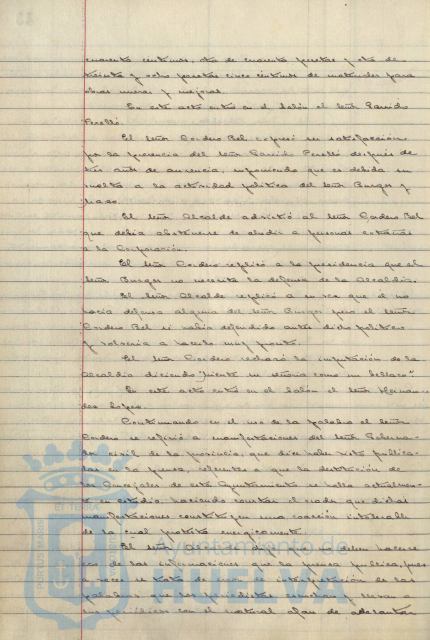 cuenta centimos, otro de cuenta pesetas y otro de
treinta y ocho pesetas cinco centimos de materiales para
obras nuevas y mejoras.
En este acto entra en el Salón el Señor Garrido
Perelló.
El Señor Cordero Bel expresó su satisfacción
por la presencia del Señor Garrido Perelló después de
tres de ausencia, suponiendo que es debida su
vuelta a la actividad política del Señor Burgos y
Mazo.
El Señor Alcalde advirtió al Señor Cordero Bel
que debía abstenerse de aludir a personas extrañas
a la Corporación.
El Señor Cordero replicó a la presidencia que el
Señor Burgos no necesita la defensa de la Alcaldía.
El Señor Alcalde replicó a su vez que él no
hacía defensa alguna del Señor Burgos pero el Señor
Cordero Bel si había defendido antes dicho político
y volvería a hacerlo muy pronto.
El Señor Cordero rechazó la imputación de la
Alcaldía diciendo "miente su señoría como un bellaco".
En este acto entra en el Salón el Señor Hernan-
dez López.
Continuando en el uso de la palabra el Señor
Cordero se refirió a manifestaciones del Señor Goberna-
dor civil de la provincia, que dice haber visto publica-
das en la prensa, referentes a que la destitución de
los Concejales de este Ayuntamiento se halla actualmen-
te en estudio, haciendo constar el orador que dichas
manifestaciones constituyen una coacción intolerable
de la cual protesta energicamente.
El Señor Alcalde deben hacerse
eco de las informaciones que la prensa publica, pues
a veces se trata de interpretación de las
palabras que los periodistas escuchan y llevan a
los periódicos con el natural afan de adelantar
Ayuntamiento de
HUELVA